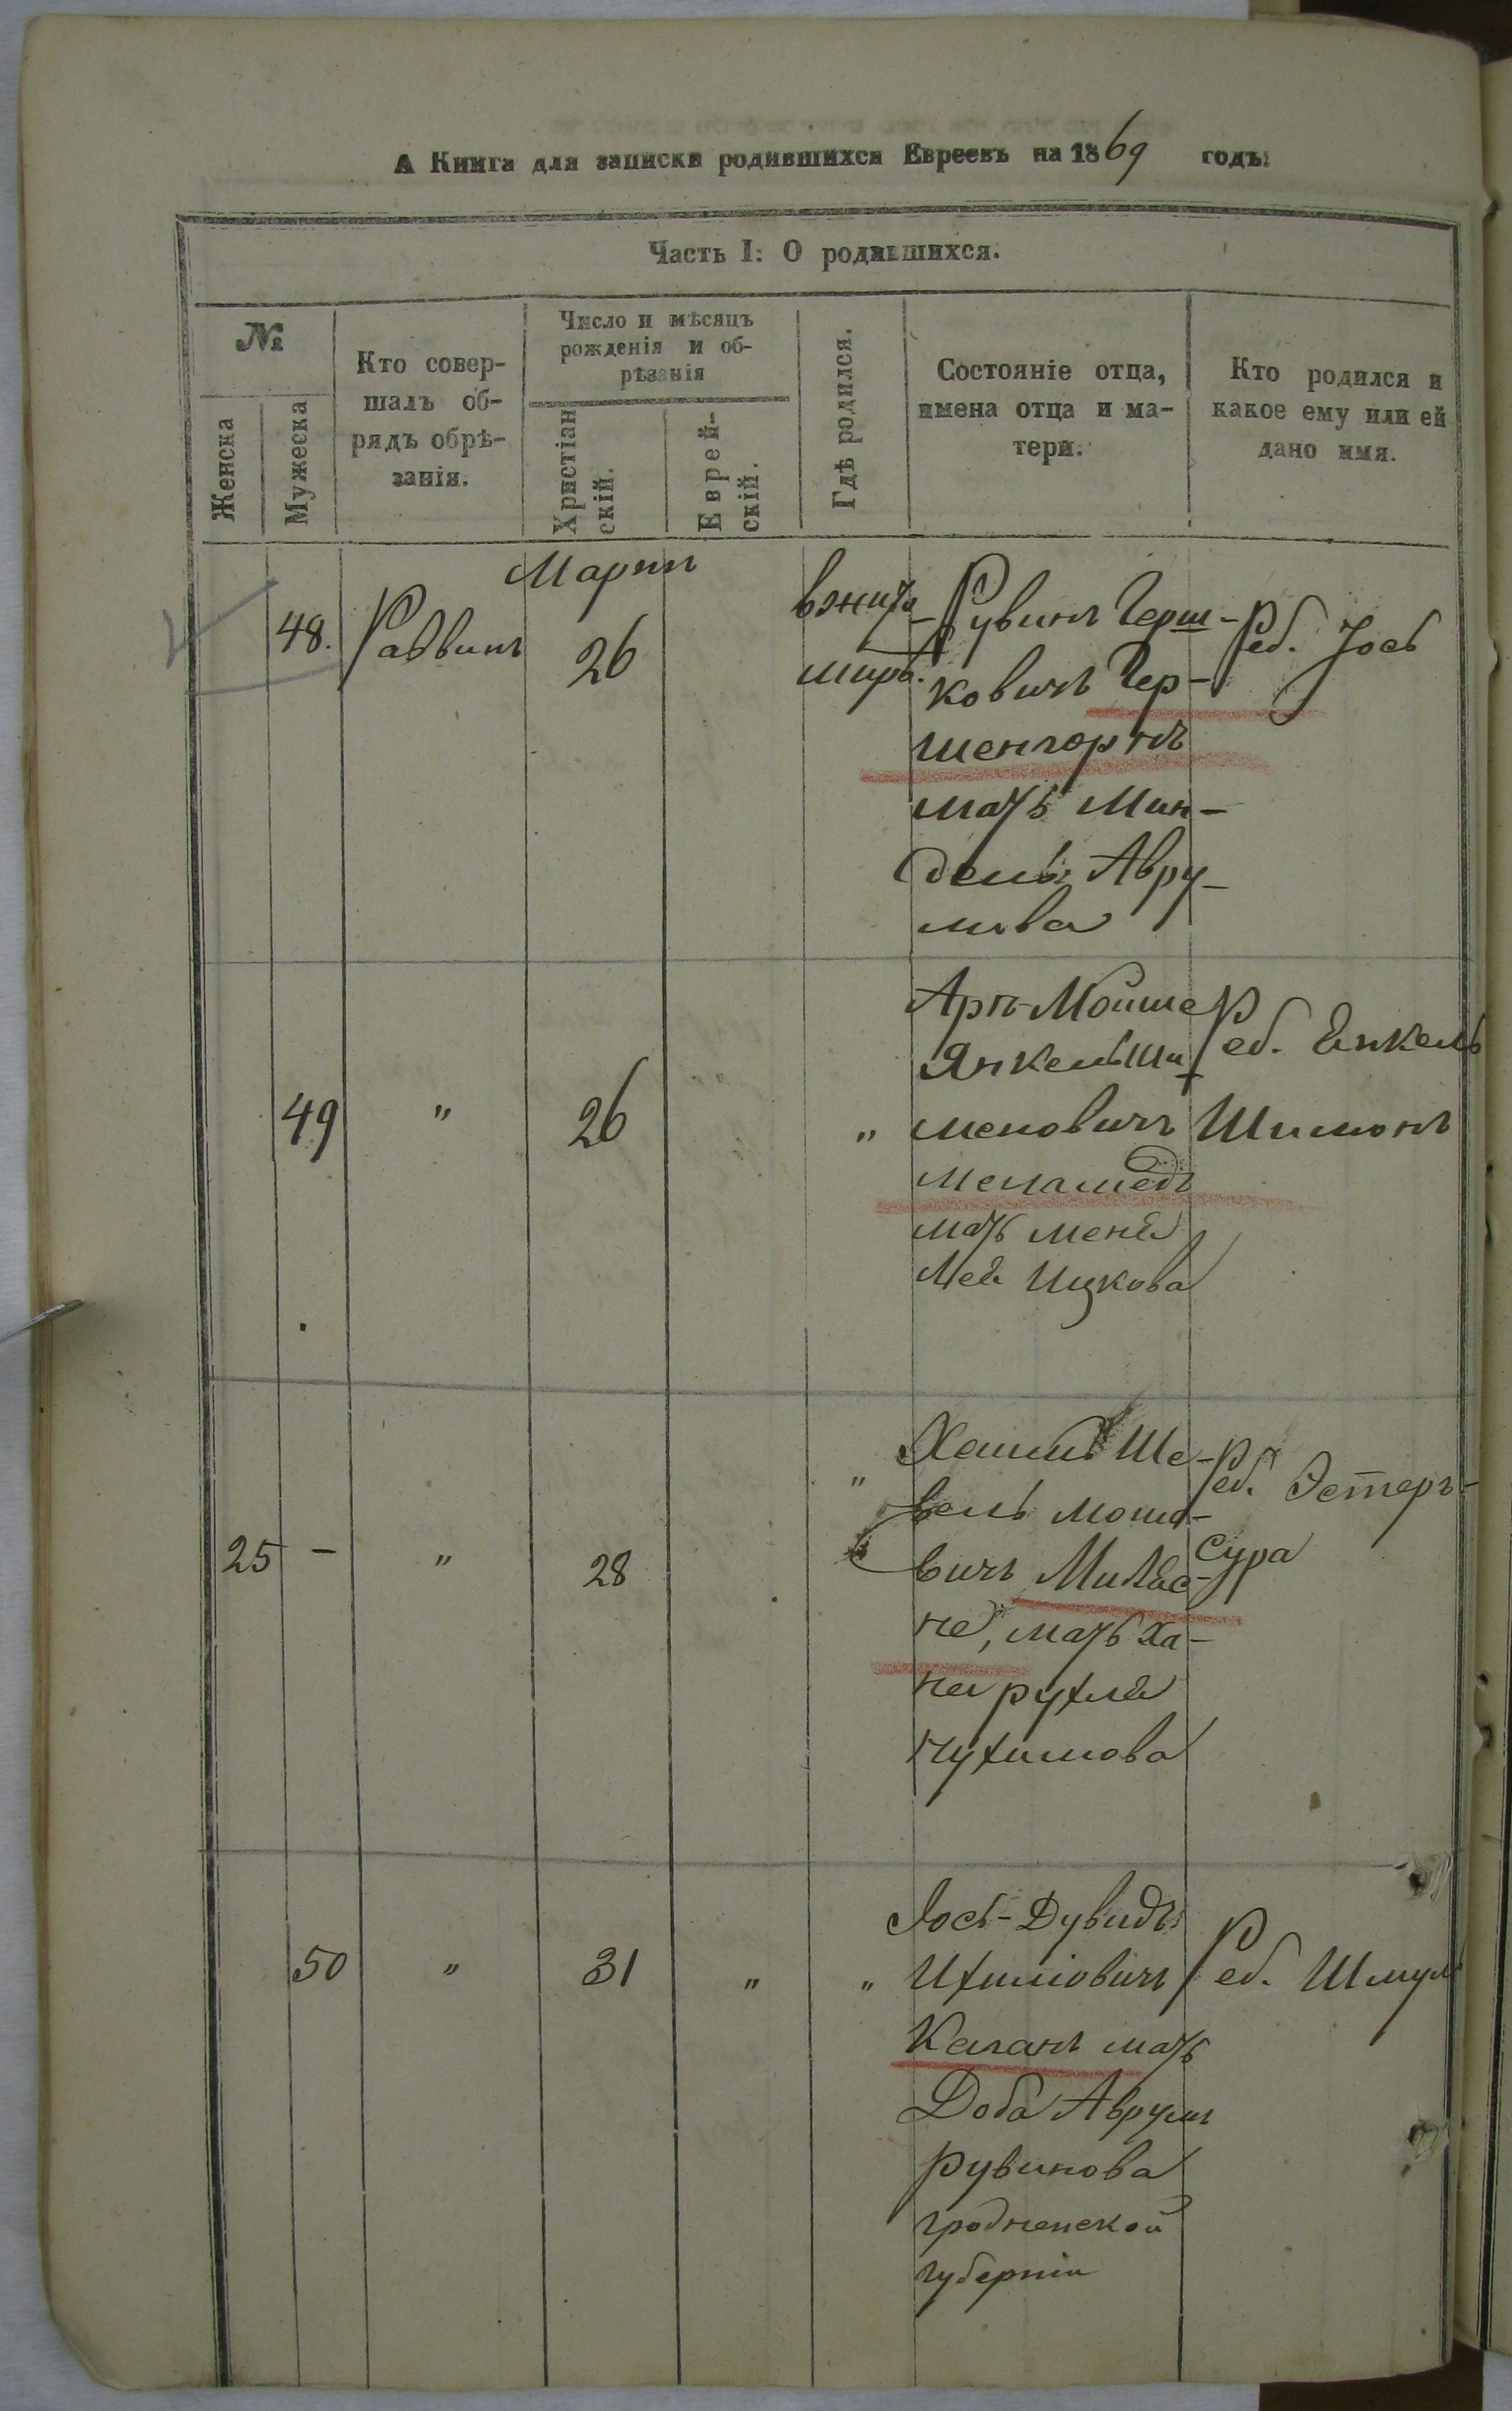 А Книга для записки родившихся Евреевъ на 1869 годъ:
Часть I: О родившихся.
№
Женска
Мужеска
Кто совер-
шалъ об-
рядъ обрѣ-
занія.
Число и мѣсяцъ
рожденія и об-
рѣзанія
Христіан
скій.
Еврей-
скій.
Гдѣ родился.
Состояніе отца,
имена отца и ма-
тери.
Кто родился и
какое ему или ей
дано имя.
Мартъ
48.
Раввинъ
26
вжито
миръ.
Рувинъ Герш-
ковичъ Гер-
шенгорнъ
мать Мин-
дель Авру-
мова
Реб. Іось
49
"
26
"
Арн-Мойше
Янкель Ши
моновичъ
меламедъ
мать
Лея Ицкова
Реб. Енкель
Шимонъ
25
-
"
28
"
Хаимъ Ше-
вель Мошо-
вичъ
не, мать Ха-
на рухля
Нухимова
Реб. Эстеръ-
сура
50
"
31
"
"
Іось-Дувидъ
Ихиловичъ
Каганъ мать
Доба Аврумъ
Рувинова
гродненской
губерніи
Реб. Шмуль